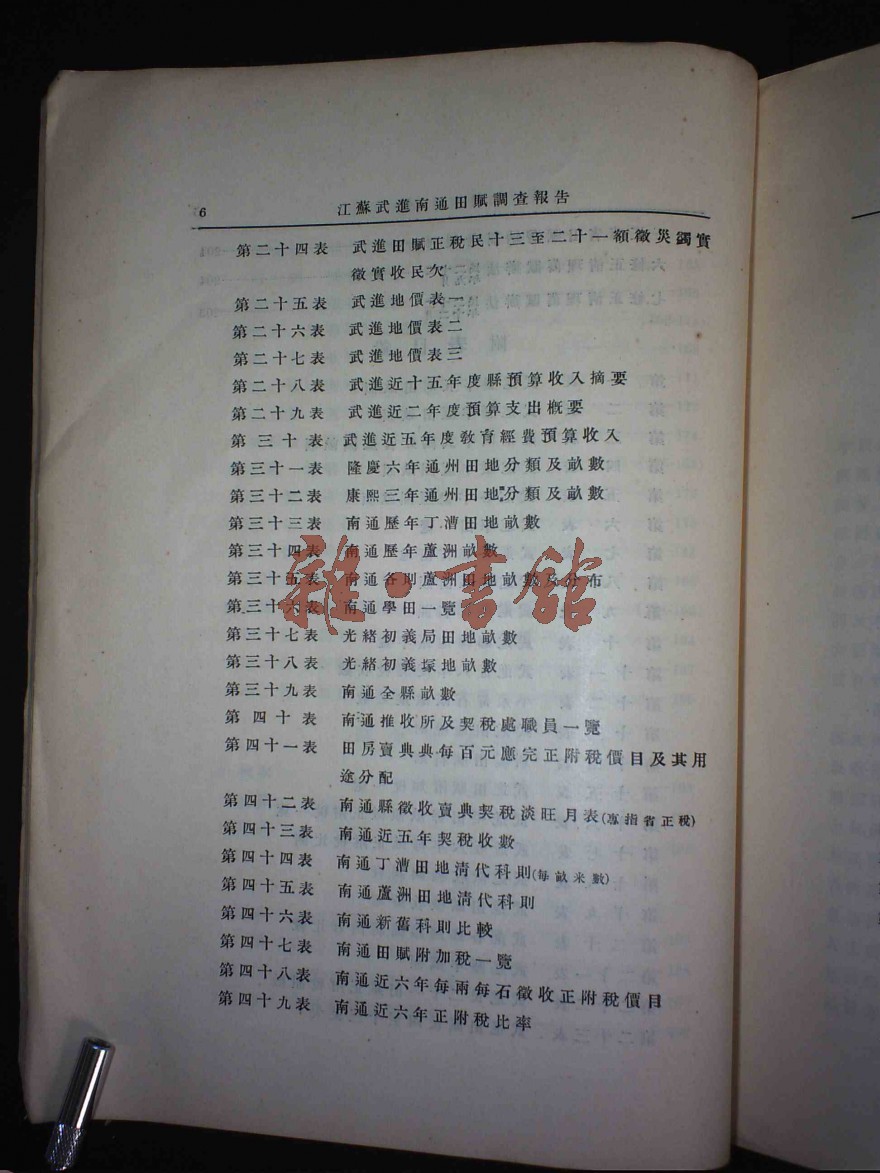 6
江蘇武進南通田賦調查報告
第二十四表 武進田賦正稅民十三至二十一額徵災蠲實
徵實收民欠
第二十五表 武進地價表一
第二十六表 武進地價表二
第二十七表 武進地價表三
第二十八表 武進近十五年度縣預算收入摘要
第二十九表 武進近二年度預算支出概要
第三十表 武進近五年度敎育經費預算收入
第三十一表 隆慶六年通州田地分類及畝數
第三十二表 康熙三年通州田地分類及畝數
第三十三表 南通歷年丁漕田地畝數
第三十四表 南通歷年蘆洲畝數
第三十五表 南通各則蘆洲田地畝數及分布
第三十六表 南通學田一覽
第三十七表 光緒初義局田地畝數
第三十八表 光緒初義塚地畝數
第三十九表 南通全縣畝數
第四十表 南通推收所及契稅處職員一覽
第四十一表 田房賣典典每百元應完正附稅價目及其用
途分配
第四十二表 南通縣徵收賣典契稅淡旺月表(專指省正稅)
第四十三表 南通近五年契稅收數
第四十四表 南通丁漕田地清代科則(每畝米數)
第四十五表 南通蘆洲田地清代科則
第四十六表 南通新舊科則比較
第四十七表 南通田賦附加稅一覽
第四十八表 南通近六年每兩每石徵收正附稅價目
第四十九表 南通近六年正附稅比率
雜·書館